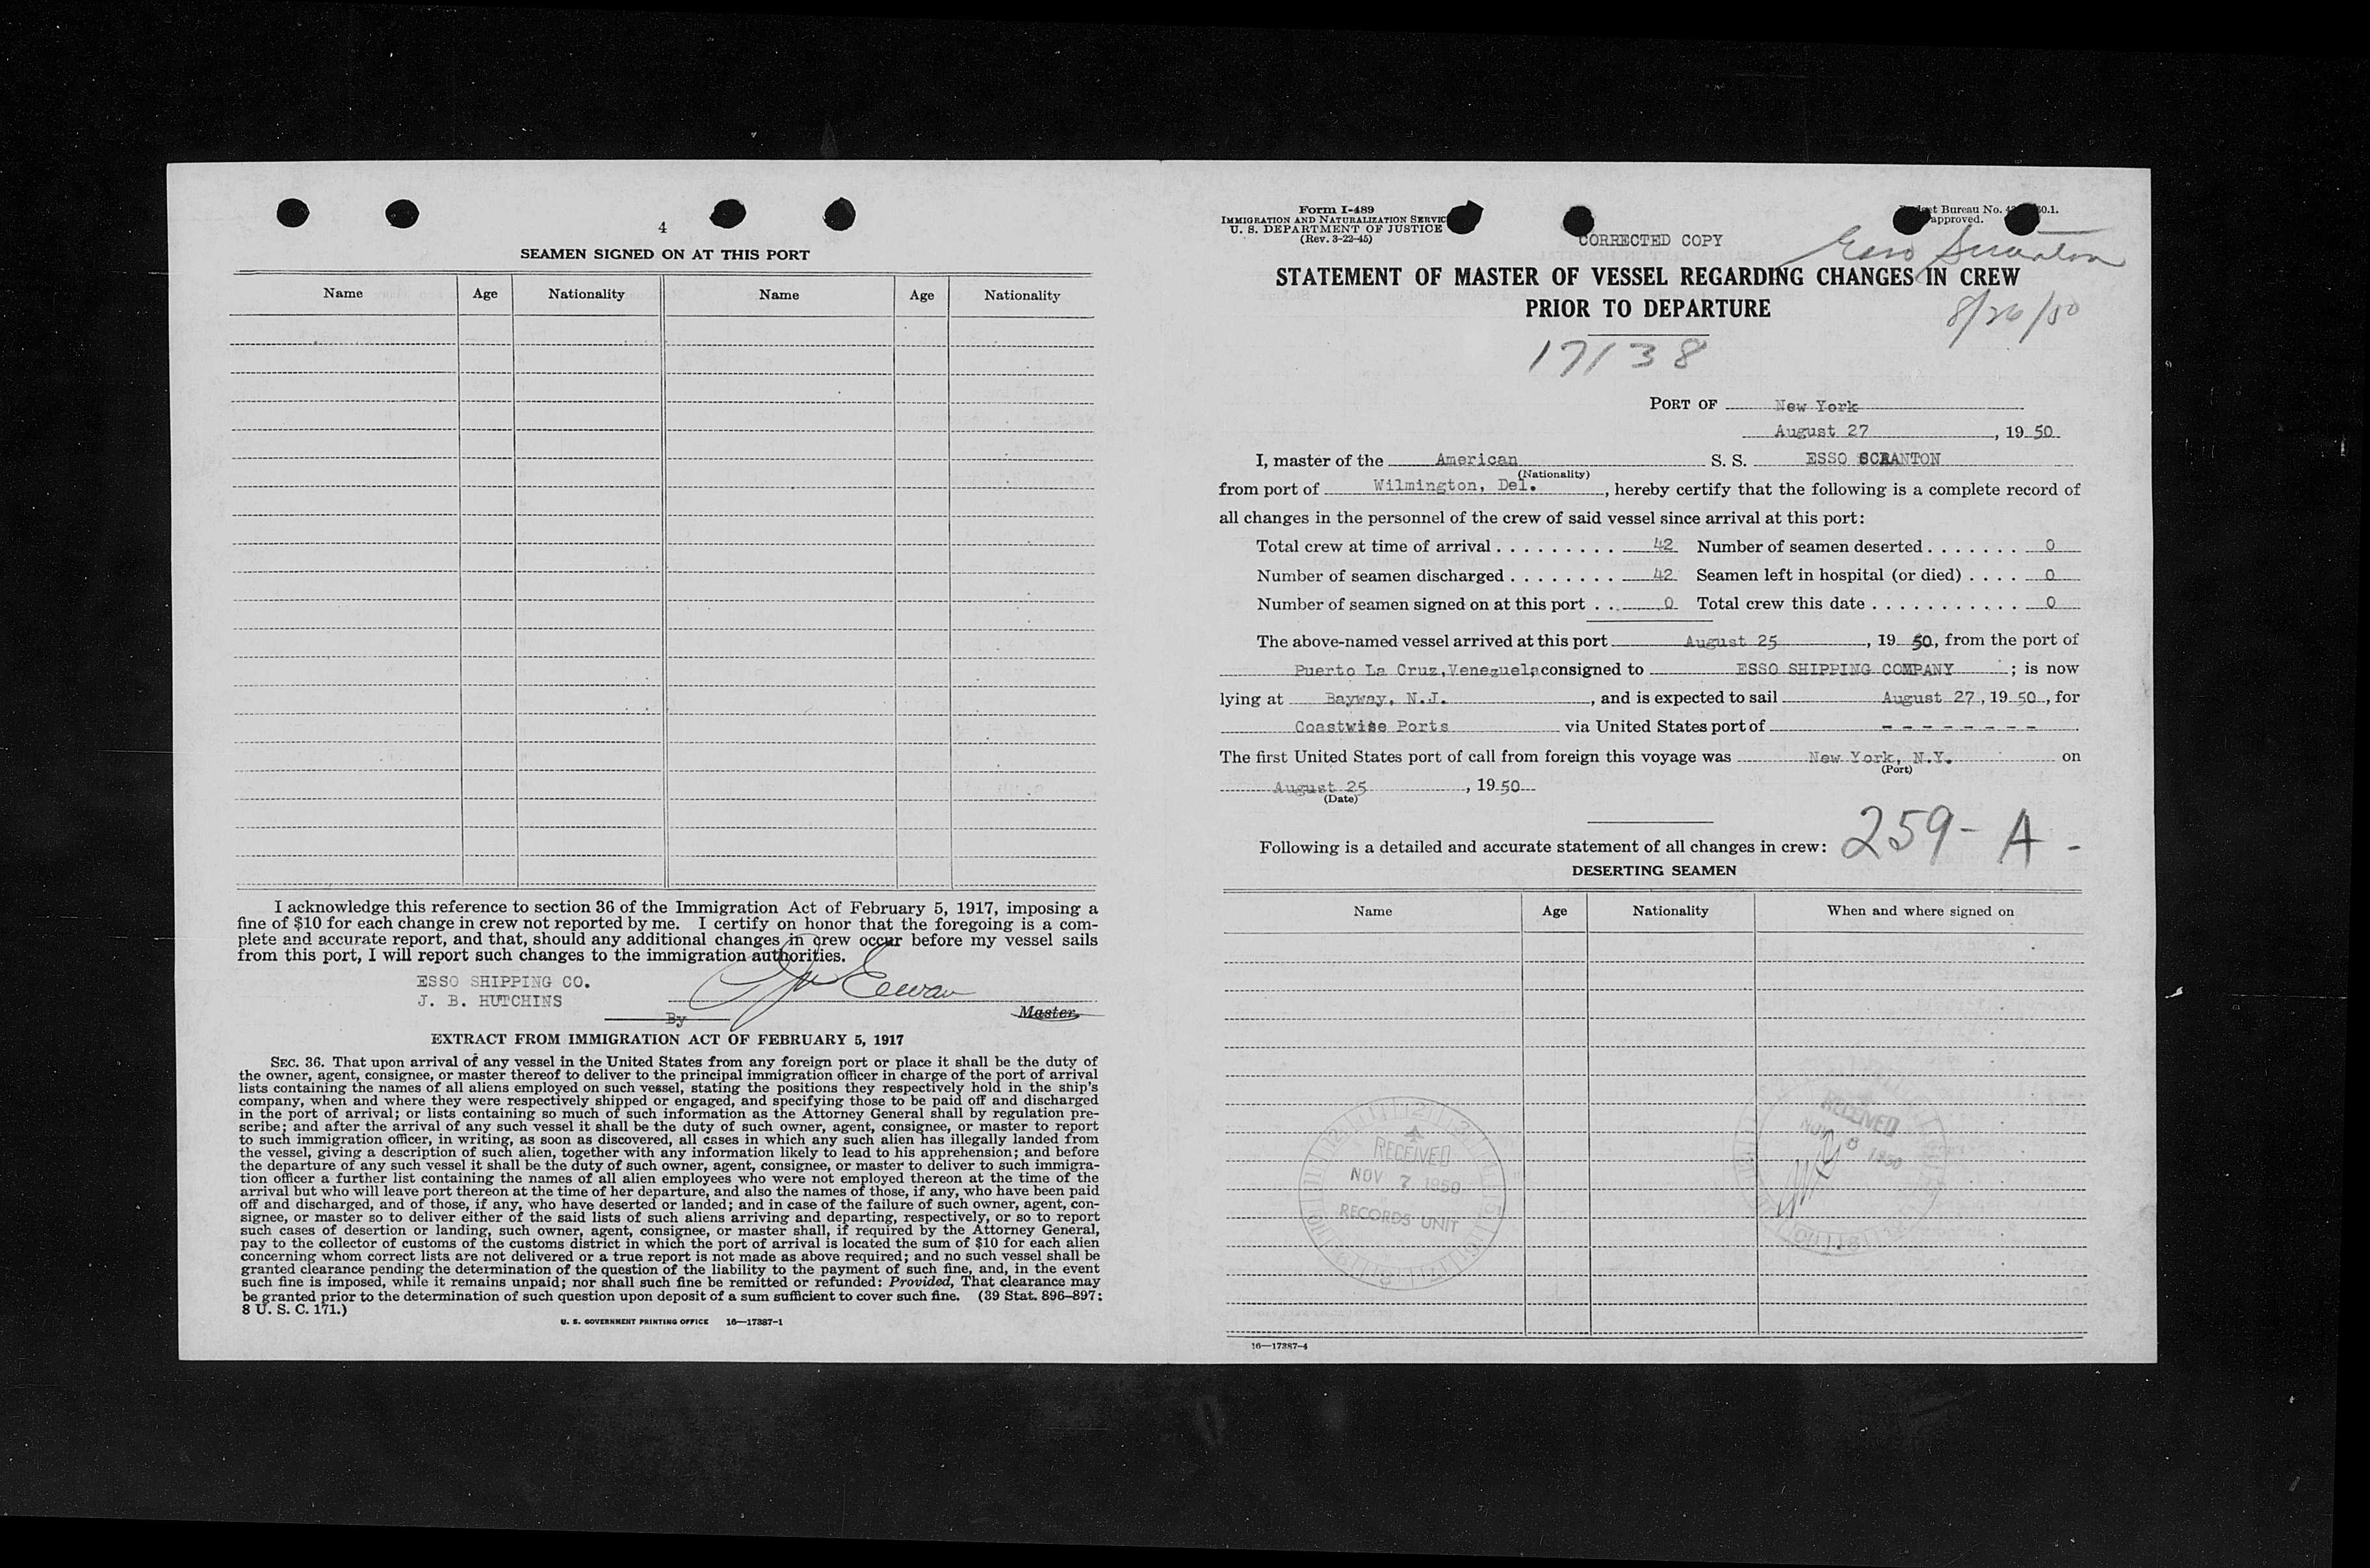 4
SEAMEN SIGNED ON AT THIS PORT
Name Age Nationality Name Age Nationality
I acknowledge this reference to section 36 of the Immigration Act of February 5, 1917, imposing a
fine of $10 for each change in crew not reported by me. I certify on honor that the foregoing is a com-
plete and accurate report, and that, should any additional changes in crew occur before my vessel sails
from this port, I will report such changes to the immigration authorities.
ESSO SHIPPING CO.
J. B. HUTCHINS
By
Master.
EXTRACT FROM IMMIGRATION ACT OF FEBRUARY 5, 1917
SEC. 36. That upon arrival of any vessel in the United States from any foreign port or place it shall be the duty of
the owner, agent, consignee, or master thereof to deliver to the principal immigration officer in charge of the port of arrival
lists containing the names of all aliens employed on such vessel, stating the positions they respectively hold in the ship's
company, when and where they were respectively shipped or engaged, and specifying those to be paid off and discharged
in the port of arrival; or lists containing so much of such information as the Attorney General shall by regulation pre-
scribe; and after the arrival of any such vessel it shall be the duty of such owner, agent, consignee, or master to report
to such immigration officer, in writing, as soon as discovered, all cases in which any such alien has illegally landed from
the vessel, giving a description of such alien, together with any information likely to lead to his apprehension; and before
the departure of any such vessel it shall be the duty of such owner, agent, consignee, or master to deliver to such immigra-
tion officer a further list containing the names of all alien employees who were not employed thereon at the time of the
arrival but who will leave port thereon at the time of her departure, and also the names of those, if any, who have been paid
off and discharged, and of those, if any, who have deserted or landed; and in case of the failure of such owner, agent, con-
signee, or master so to deliver either of the said lists of such aliens arriving and departing, respectively, or so to report
such cases of desertion or landing, such owner, agent, consignee, or master shall, if required by the Attorney General,
pay to the collector of customs of the customs district in which the port of arrival is located the sum of $10 for each alien
concerning whom correct lists are not delivered or a true report is not made as above required; and no such vessel shall be
granted clearance pending the determination of the question of the liability to the payment of such fine, and, in the event
such fine is imposed, while it remains unpaid; nor shall such fine be remitted or refunded: Provided, That clearance may
be granted prior to the determination of such question upon deposit of a sum sufficient to cover such fine. (39 Stat. 896–897;
8 U. S. C. 171.)
U. S. GOVERNMENT PRINTING OFFICE 16—17387-1
Form I-489
IMMIGRATION AND NATURALIZATION SERVIC
U. S. DEPARTMENT OF JUSTICE
(Rev. 3-22-45)
Bureau No.
approved.
CORRECTED COPY
Esso Scranton
STATEMENT OF MASTER OF VESSEL REGARDING CHANGES IN CREW
PRIOR TO DEPARTURE
8/26/50
17138
PORT OF New York
August 27, 19 50
I, master of the American S. S. ESSO SCRANTON
(Nationality)
from port of Wilmington, Del., hereby certify that the following is a complete record of
all changes in the personnel of the crew of said vessel since arrival at this port:
Total crew at time of arrival . . . . . . . . . 42 Number of seamen deserted . . . . . . . 0
Number of seamen discharged . . . . . . . . 42 Seamen left in hospital (or died) . . . . 0
Number of seamen signed on at this port . . 0 Total crew this date . . . . . . . . . . . . 0
The above-named vessel arrived at this port August 25, 19 50, from the port of
Puerto La Cruz, Venezuela consigned to ESSO SHIPPING COMPANY ; is now
lying at Bayway, N.J., and is expected to sail August 27, 19 50, for
Coastwise Ports via United States port of - - - - - - - -
The first United States port of call from foreign this voyage was New York, N.Y. on
(Port)
August 25, 19 50
(Date)
259- A -
Following is a detailed and accurate statement of all changes in crew:
DESERTING SEAMEN
Name Age Nationality When and where signed on
RECEIVED
NOV 7 1950
RECORDS UNIT
RECEIVED
NOV 8 1950
16—17387-4